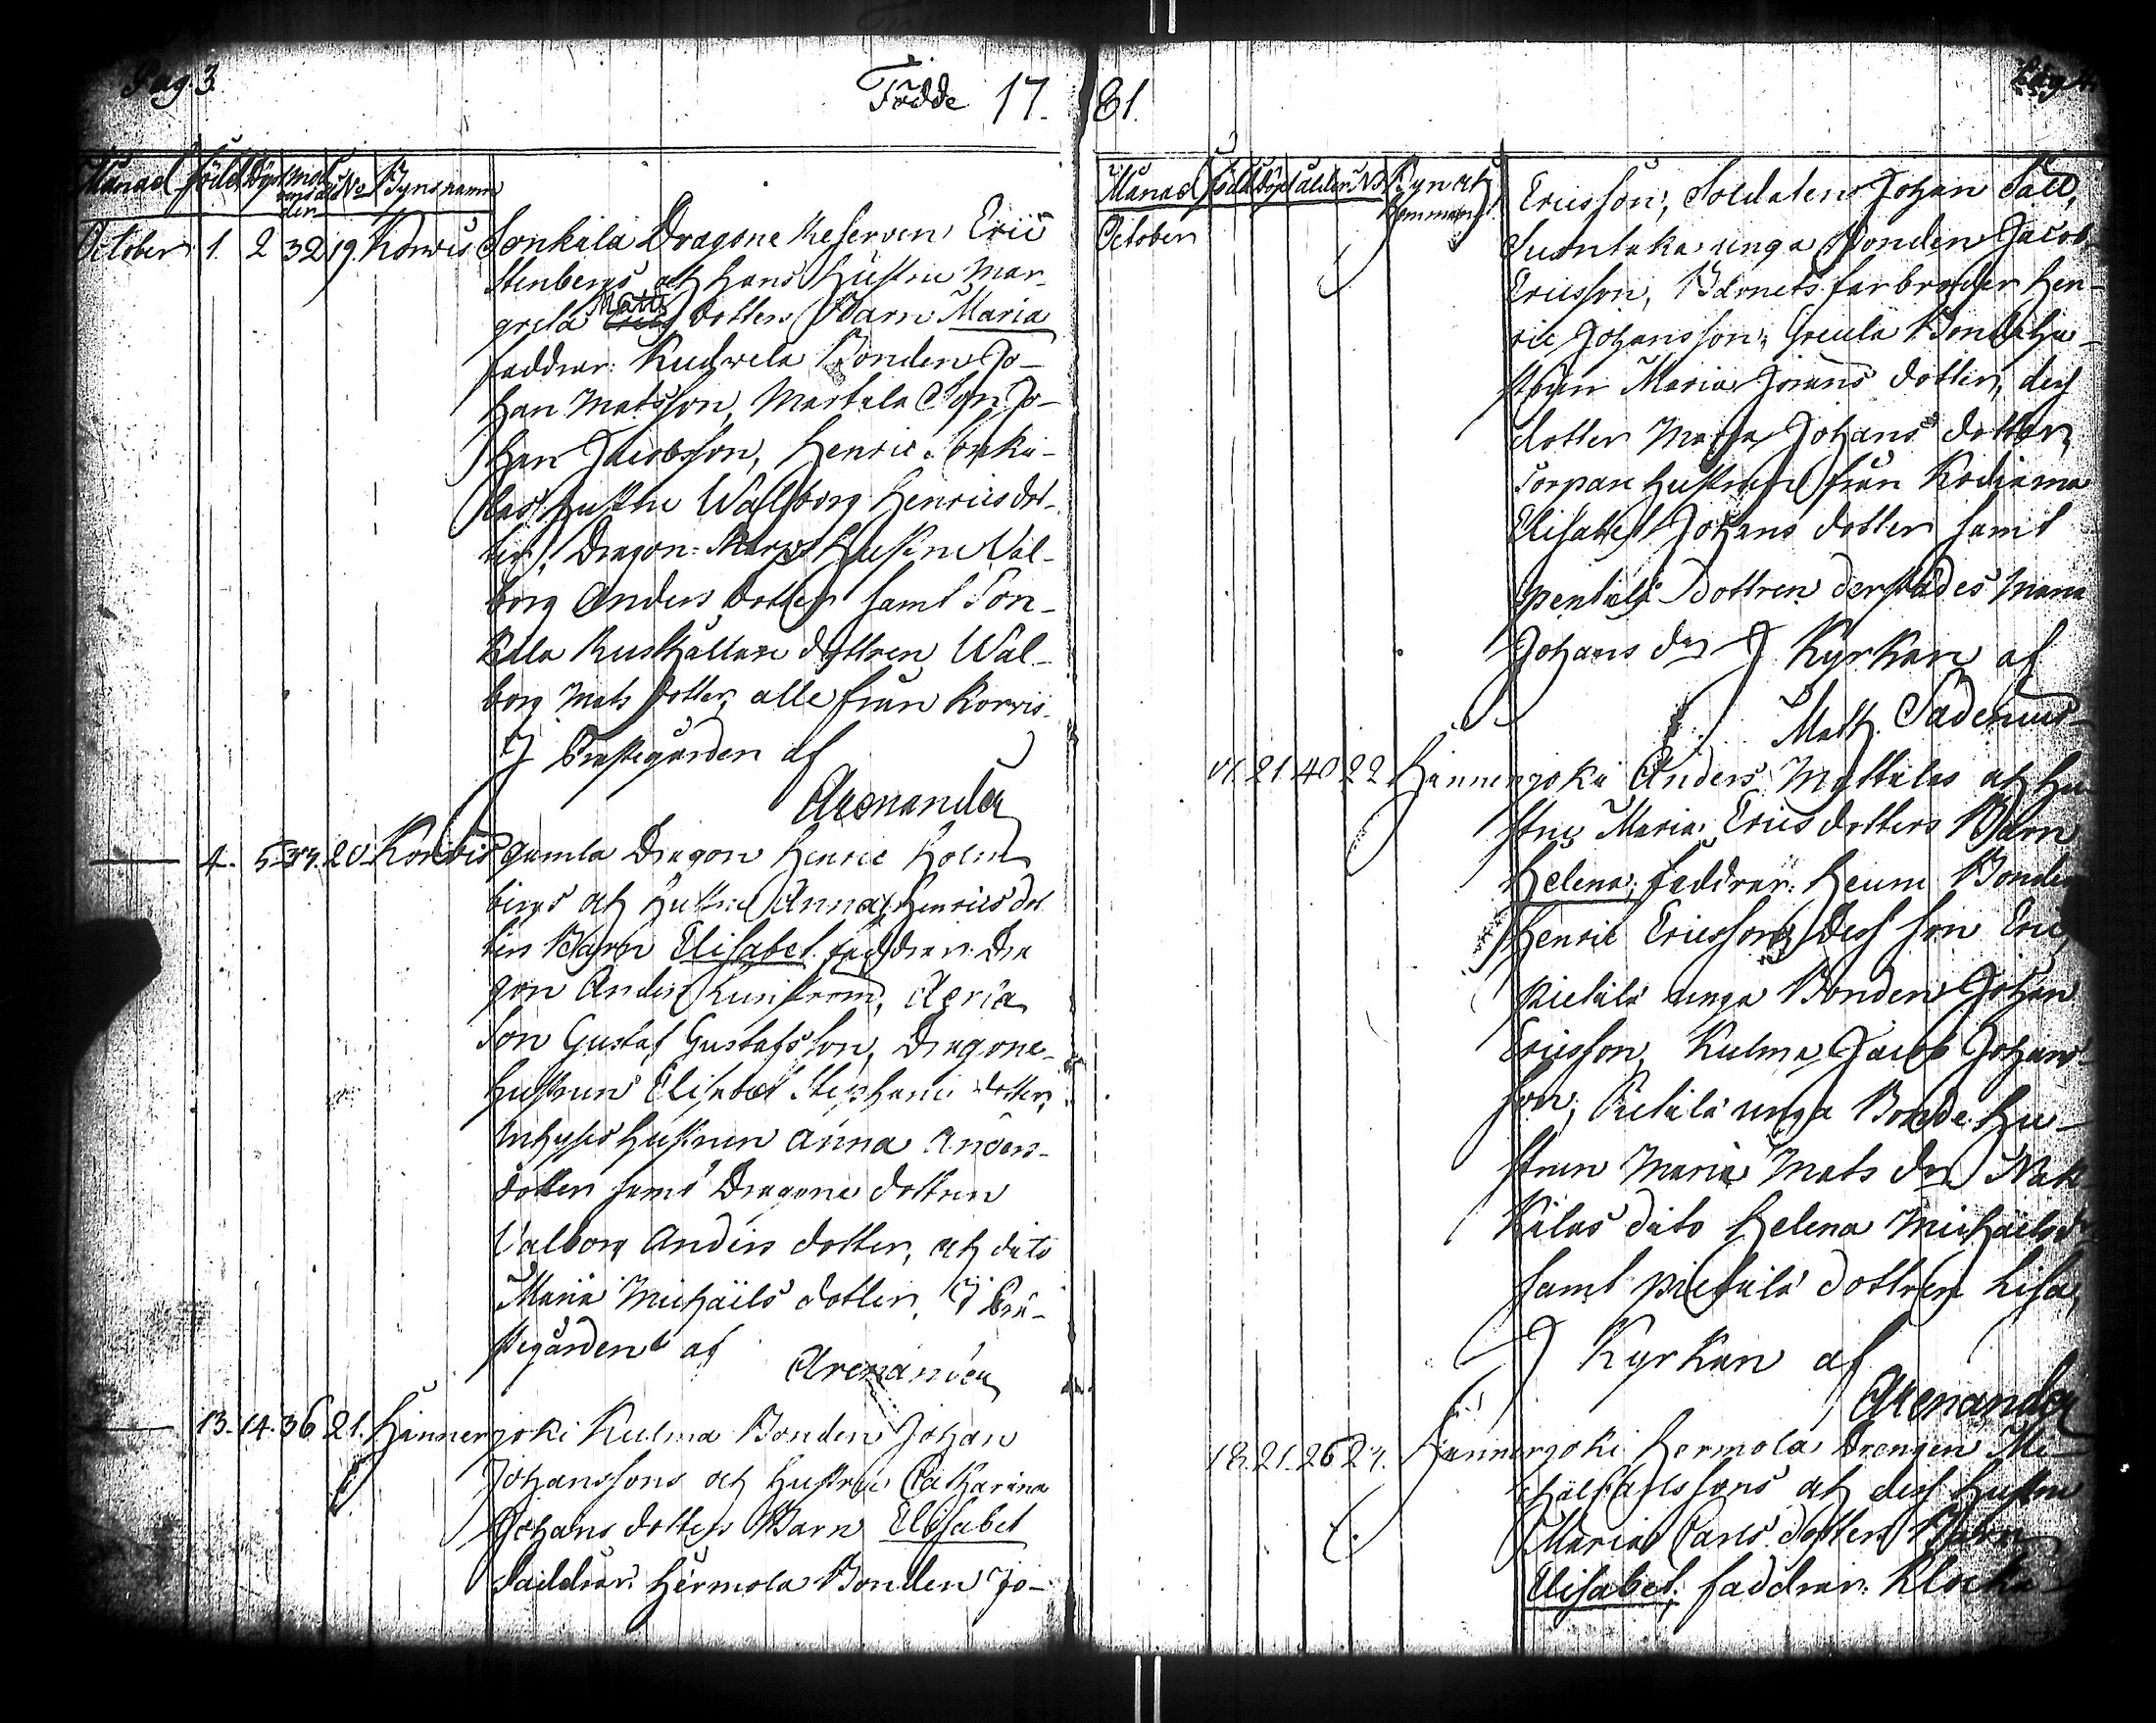 Pag. 3.
Födde 17
Månad Född Döpt Mod rens ål der No Byns namn
October 1. 2 32 19. Korvis Sonkila Dragone Reserven Eric
Stenbergs och Hans Hustru Mar-
greta Matts dotters Barn Maria
faddrar: Kudnela Bonden Jo-
han Matsson, Martela Son Jo-
han Jacobsson, Henric Sonki-
las Hustru Walborg Henricsdot-
ter, Dragon Hustru Val-
borg Anders dotter samt Son-
kila Rusthållare dottren Wal-
borg Mats dotter, alle från Korvis
I Prestegården af
Arenander
4. 5. 20. Korvis gamla Dragon Henric Holm
bergs och Hustru Anna Henricsdot
ters Barn Elisabet faddrar: Dra
gon Anders
Son Gustaf Gustafsson, Dragone-
hustrun Elisabet Stephans dotter,
Inhyses hustrun Anna Anders-
dotter samt Dragone dottren
Valborg Anders dotter, och dito
Maria Michaels dotter. I Pre-
stegården af
Arenander
13. 14. 36 21. Hinnerjoki Kulma Bonden Johan
Johanssons och Hustru Catharina
Johans dotters Barn Elisabet
Faddrar: Hermola Bonden Jo-
81.
Pag. 4.
Månad Född Döpt ålder No Byn och Hemman
October
Ericsson, Soldaten Johan Säll,
Suontaka unga Bonden Jacob
Ericsson, Barnets farbroder Hen-
ric Johansson, Bonde Hu-
strun Maria Jörans dotter, dess
dotter Maria Johans dotter,
Torpare hustrun från Kodiama
Elisabet Johans dotter samt
Penttilä dottren derstädes Maria
Johans dr I Kyrkan af
Math. Sadenius
21 40 22 Hinnerjoki Anders Mattilas och Hu-
stru Maria Ericsdotters Barn
Helena, faddrar: Heimu Bonden
Henric Ericsson, Dess Son Eric,
Pietilä unga Bonden Johan
Ericsson, Kulma Jacob Johans
son, Pietilä unga Bonde Hu-
strun Maria Mats dr
kilas dito Helena Michaelsdr
samt Pietilä dottren Lisa,
I Kyrkan af
Arenander
18. 21. 26 23. Hinnerjoki Hermola Drengen Mi-
chael Carlssons och dess Hustru
Maria Carls dotters Barn
Elisabet, faddrar: Klocka